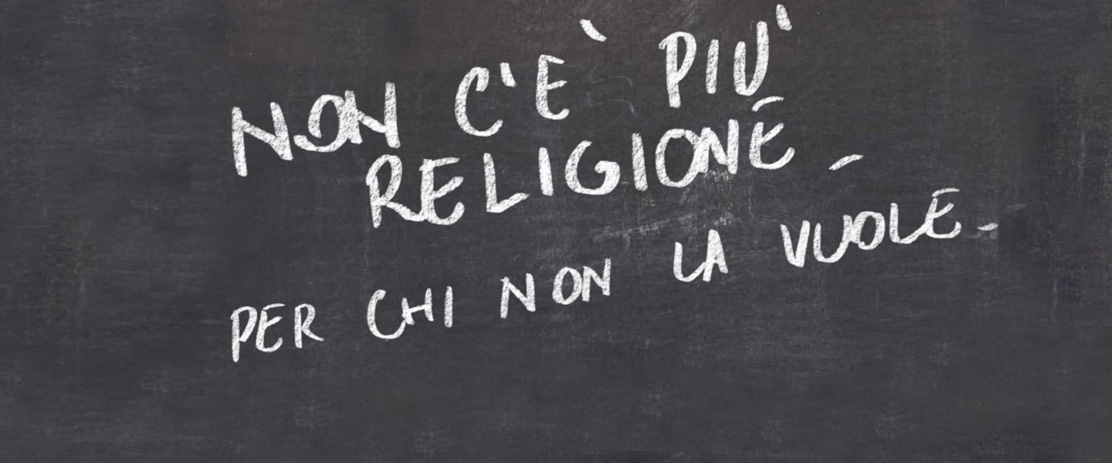 NON C'E` PIU'
RELIGIONE -
PER CHI NON LA VUOLE -